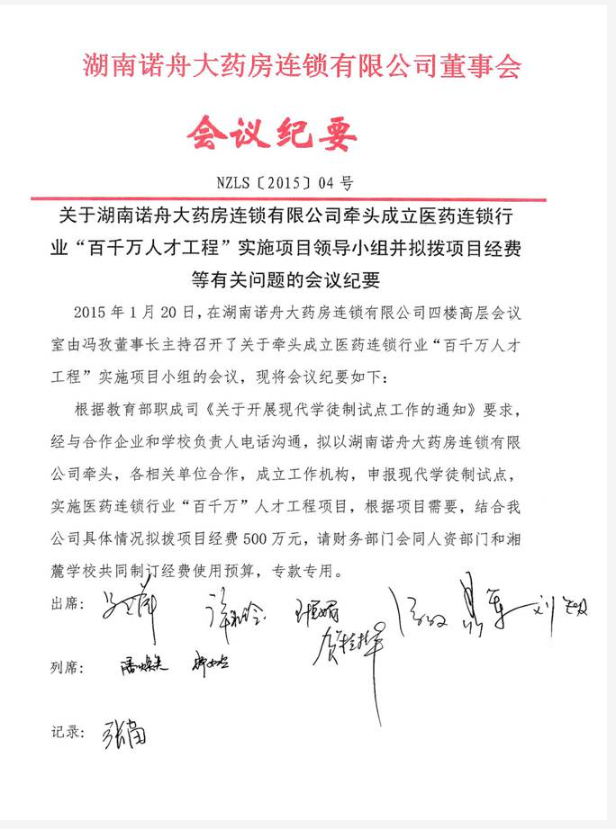 湖南诺舟大药房连锁有限公司董事会
会议纪要
NZLS〔2015〕04 号
关于湖南诺舟大药房连锁有限公司牵头成立医药连锁行
业“百千万人才工程”实施项目领导小组并拟拨项目经费
等有关问题的会议纪要
2015 年 1 月 20 日,在湖南诺舟大药房连锁有限公司四楼高层会议
室由冯孜董事长主持召开了关于牵头成立医药连锁行业“百千万人才
工程”实施项目小组的会议,现将会议纪要如下:
根据教育部职成司《关于开展现代学徒制试点工作的通知》要求,
经与合作企业和学校负责人电话沟通,拟以湖南诺舟大药房连锁有限
公司牵头,各相关单位合作,成立工作机构,申报现代学徒制试点,
实施医药连锁行业“百千万”人才工程项目,根据项目需要,结合我
公司具体情况拟拨项目经费 500 万元,请财务部门会同人资部门和湘
麓学校共同制订经费使用预算,专款专用。
出席:
列席:
记录: